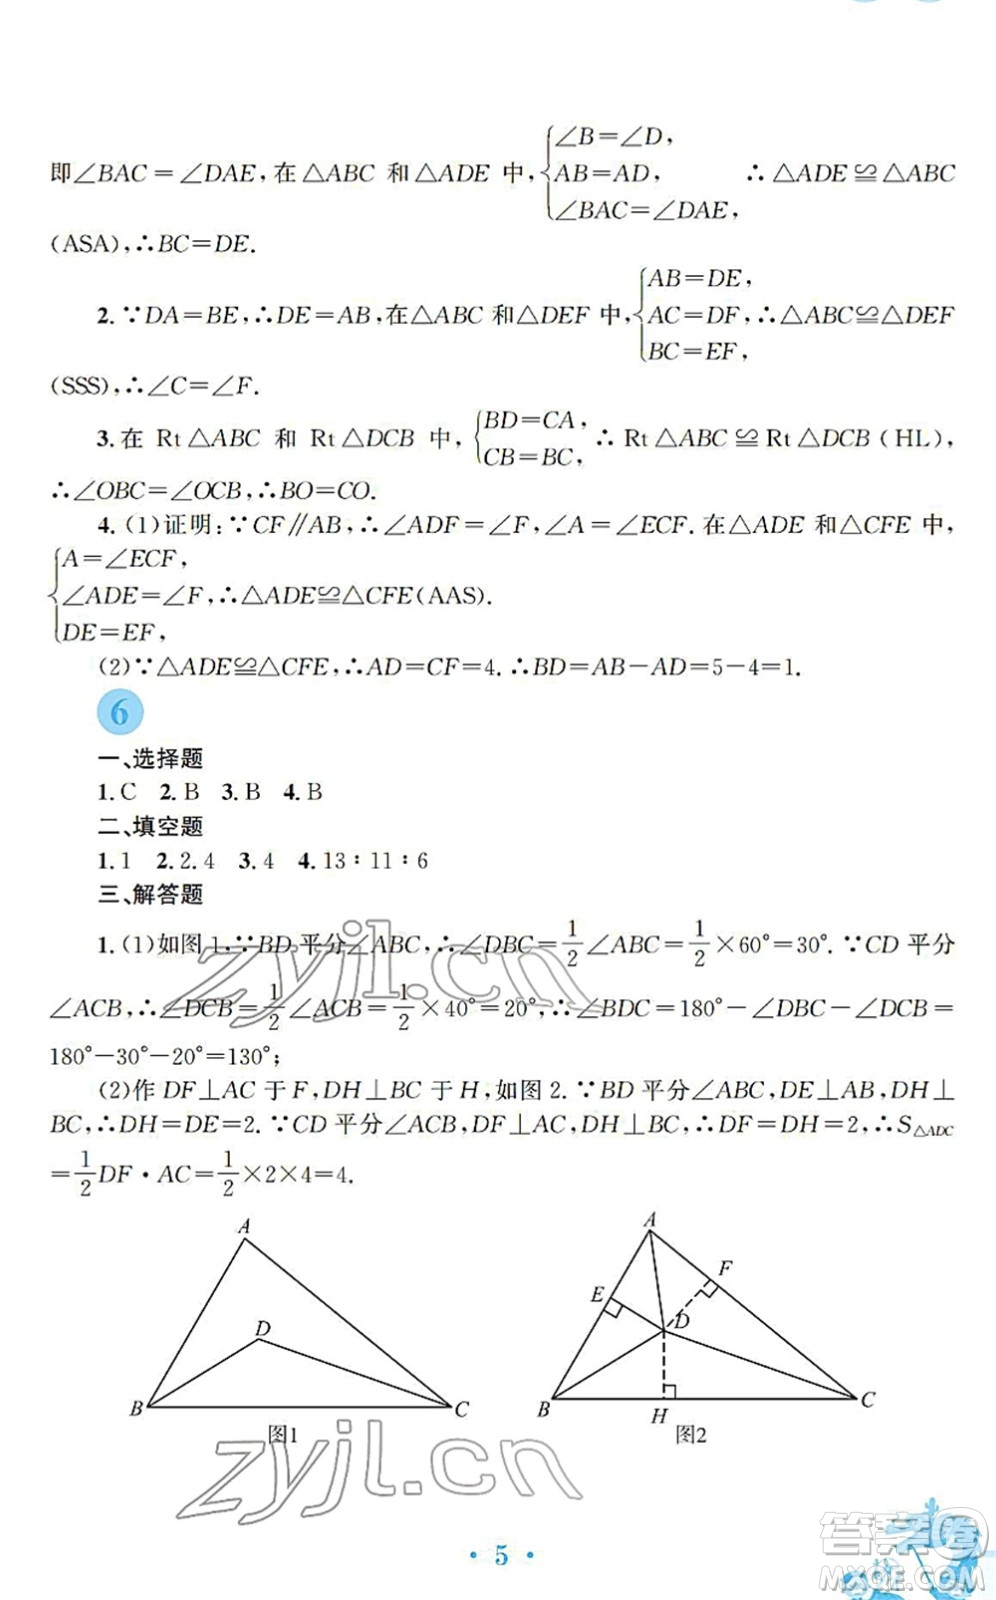 即∠BAC=∠DAE,在△ABC 和△ADE 中,{∠B=∠D, AB=AD, ∠BAC=∠DAE, ∴△ADE≌△ABC
(ASA),∴BC=DE.
2.∵DA=BE,∴DE=AB,在△ABC 和△DEF 中,{AB=DE, AC=DF, BC=EF, ∴△ABC≌△DEF
(SSS),∴∠C=∠F.
3.在 Rt△ABC 和 Rt△DCB 中,{BD=CA, CB=BC, ∴Rt△ABC≌Rt△DCB(HL),
∴∠OBC=∠OCB,∴BO=CO.
4.(1)证明:∵CF∥AB,∴∠ADF=∠F,∠A=∠ECF.在△ADE 和△CFE 中,
{A=∠ECF,
∠ADE=∠F,∴△ADE≌△CFE(AAS).
DE=EF,
(2)∵△ADE≌△CFE,∴AD=CF=4.∴BD=AB-AD=5-4=1.
6
一、选择题
1.C 2.B 3.B 4.B
二、填空题
1.1 2.2.4 3.4 4.13∶11∶6
三、解答题
1.(1)如图 1,∵BD 平分∠ABC,∴∠DBC=1/2∠ABC=1/2×60°=30°.∵CD 平分
∠ACB,∴∠DCB=1/2∠ACB=1/2×40°=20°,∴∠BDC=180°-∠DBC-∠DCB=
180°-30°-20°=130°;
(2)作 DF⊥AC 于 F,DH⊥BC 于 H,如图 2.∵BD 平分∠ABC,DE⊥AB,DH⊥
BC,∴DH=DE=2.∵CD 平分∠ACB,DF⊥AC,DH⊥BC,∴DF=DH=2,∴S△ADC
=1/2DF·AC=1/2×2×4=4.
A
D
B
C
图1
A
E
F
D
B
H
C
图2
zyjl.cn
zyjl.cn
·5·
答案圈
MXQE.COM